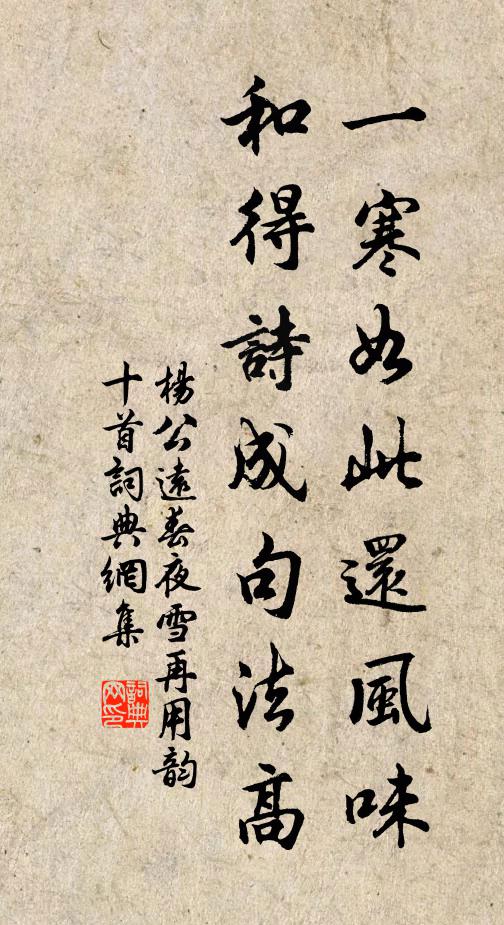 一寒如此還風味
和得詩成句法高
楊公遠春夜雪再用韵
十首詞典網集
詞典网印